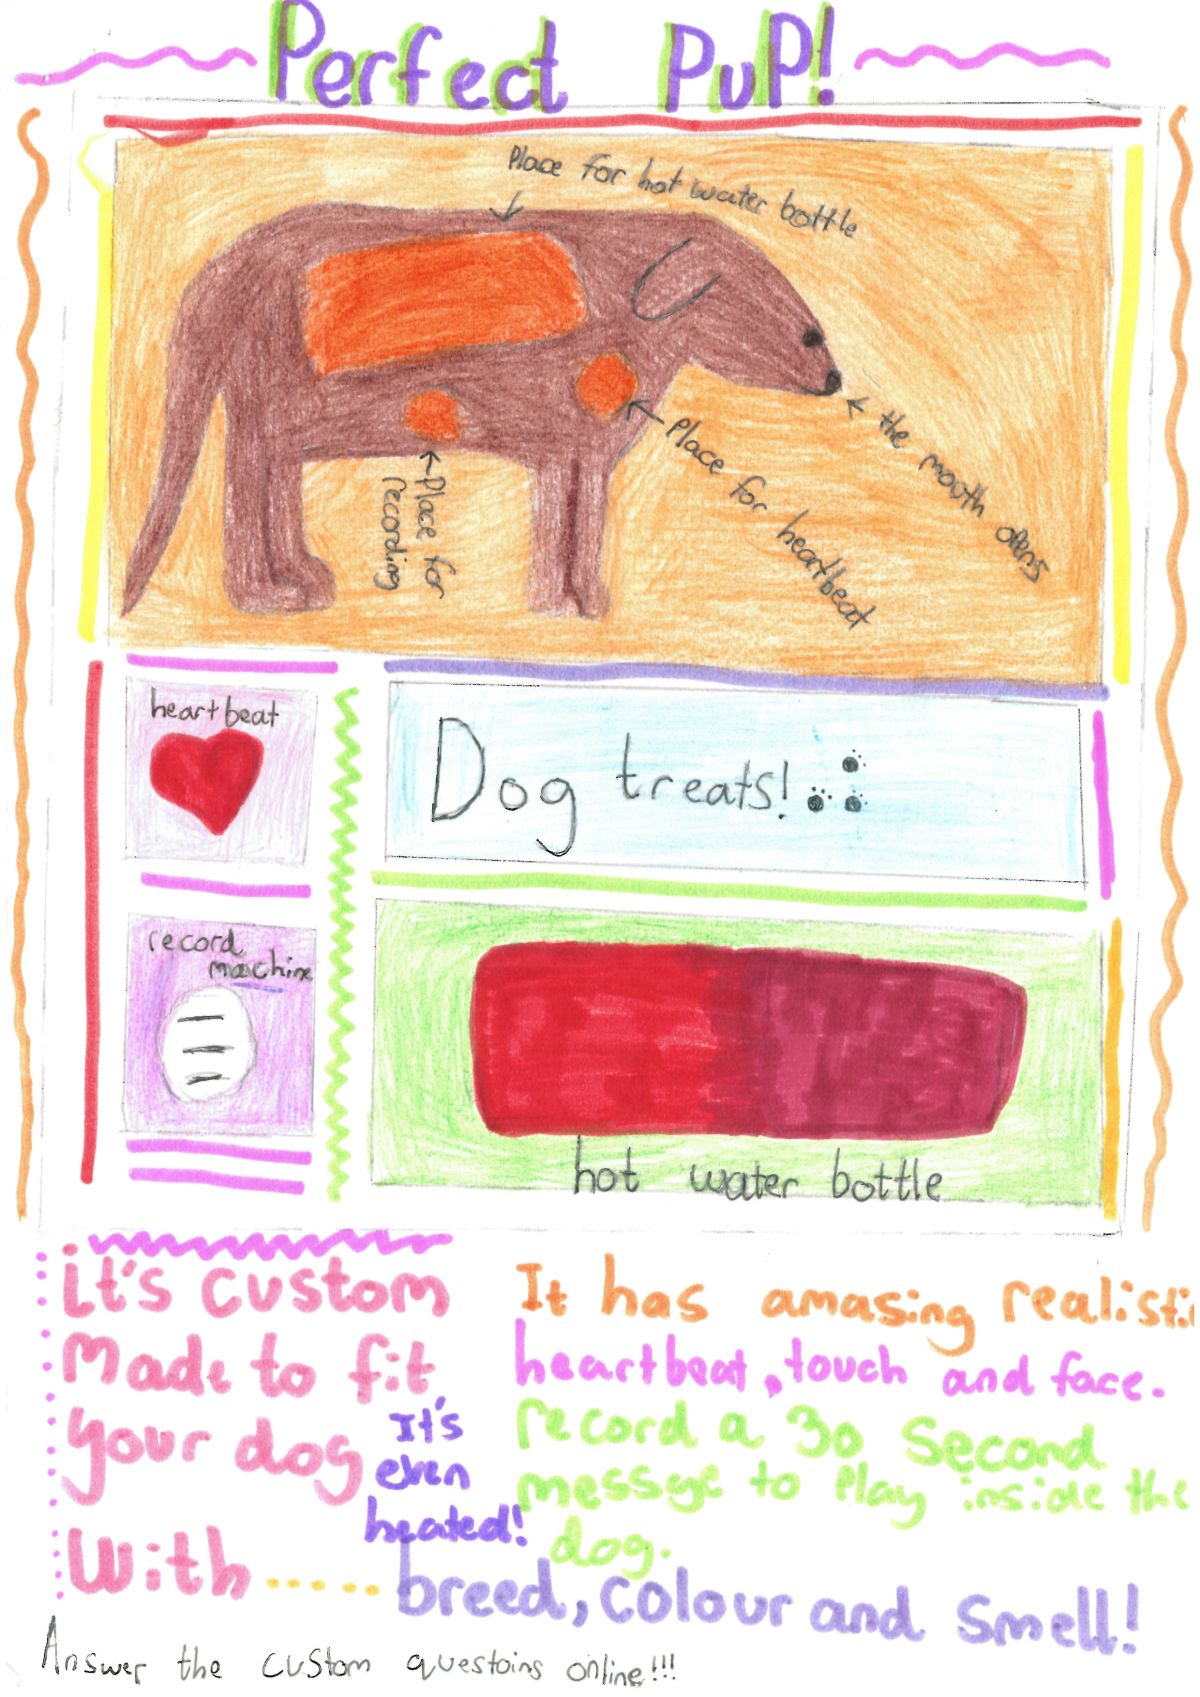 Perfect PuP!
Place for hot water bottle
the mouth opens
Place for heartbeat
Place for
recording
heartbeat
Dog treats!
record
machine
hot water bottle
it's custom
Made to fit
your dog
With ......
It's
even
heated!
It has amasing realisti
heartbeat, touch and face.
record a 30 second
messge to Play inside the
dog.
breed, colour and smell!
Answer the custom questoins online!!!